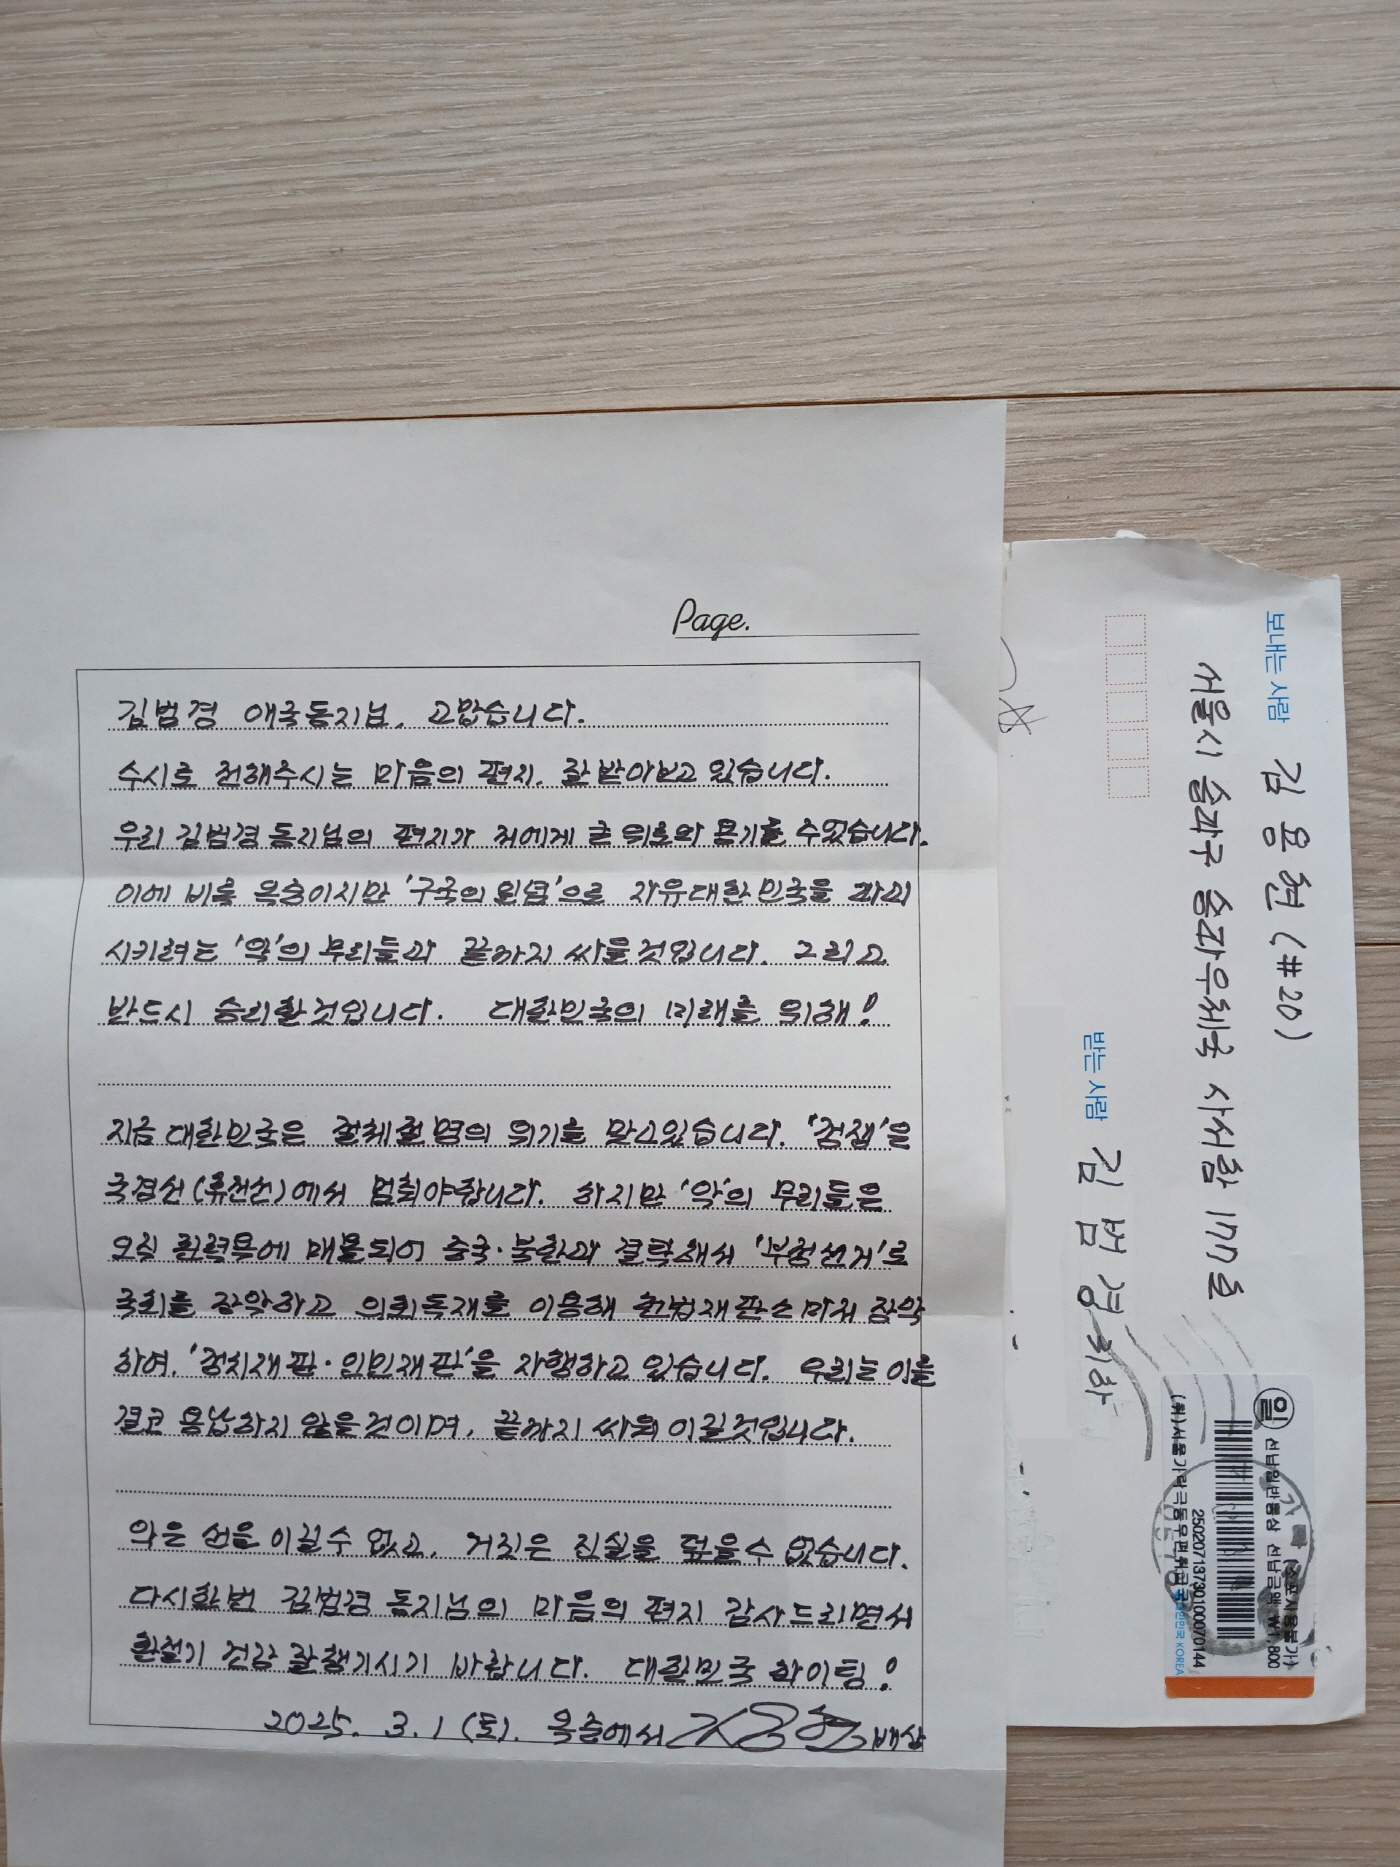 Page.
김범경 애국동지님, 고맙습니다.
수시로 전해주시는 마음의 편지, 잘 받아보고 있습니다.
우리 김범경 동지님의 편지가 저에게 큰 위로와 용기를 수있습니다.
이에 비록 옥중이지만 '구국의 일념'으로 자유대한민국을 파괴
시키려는 '악'의 무리들과 끝까지 싸울것입니다. 그리고
반드시 승리할것입니다. 대한민국의 미래를 위해!
지금 대한민국은 절체절명의 위기를 맞고있습니다. '정쟁'은
국경선(휴전선)에서 멈춰야합니다. 하지만 '악'의 무리들은
오직 권력욕에 매몰되어 중국·북한과 결탁해서 '부정선거'로
국회를 장악하고 의회독재를 이용해 헌법재판소마저 장악
하여, '정치재판·인민재판'을 자행하고 있습니다. 우리는 이를
결코 용납하지 않을것이며, 끝까지 싸워 이길것입니다.
악은 선을 이길수 없고, 거짓은 진실을 덮을수 없습니다.
다시한번 김범경 동지님의 마음의 편지 감사드리면서
환절기 건강 잘챙기시기 바랍니다. 대한민국 화이팅!
2025. 3. 1 (토). 옥중에서 김용현 배상
보내는 사람
김용현 (#20)
서울시 송파구 송파우체국 사서함 177호
받는 사람
김범경 귀하
일
선납일반통상 선납금액 ₩1,800
25020713730100070144
대한민국 KOREA